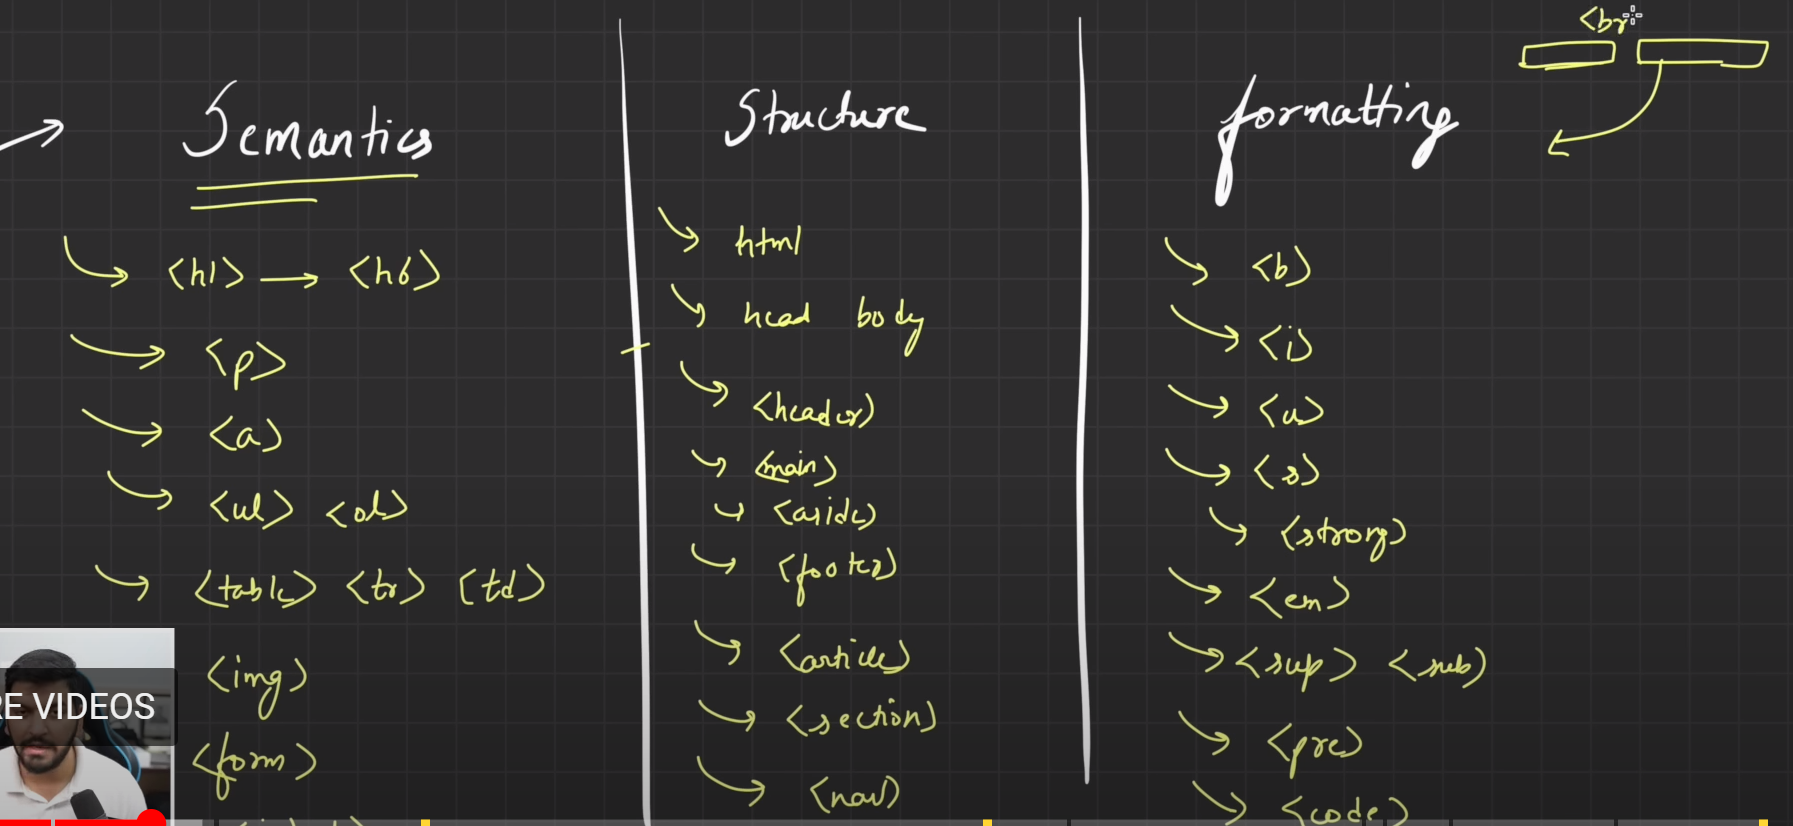 <br
Semantics
<h1> → <h6>
<p>
<a>
<ul> <ol>
<table> <tr> <td>
<img>
<form>
RE VIDEOS
Structure
html
head body
<header>
<main>
<aside>
<footer>
<article>
<section>
<nav>
formatting
<b>
<i>
<u>
<s>
<strong>
<em>
<sup> <sub>
<pre>
<code>